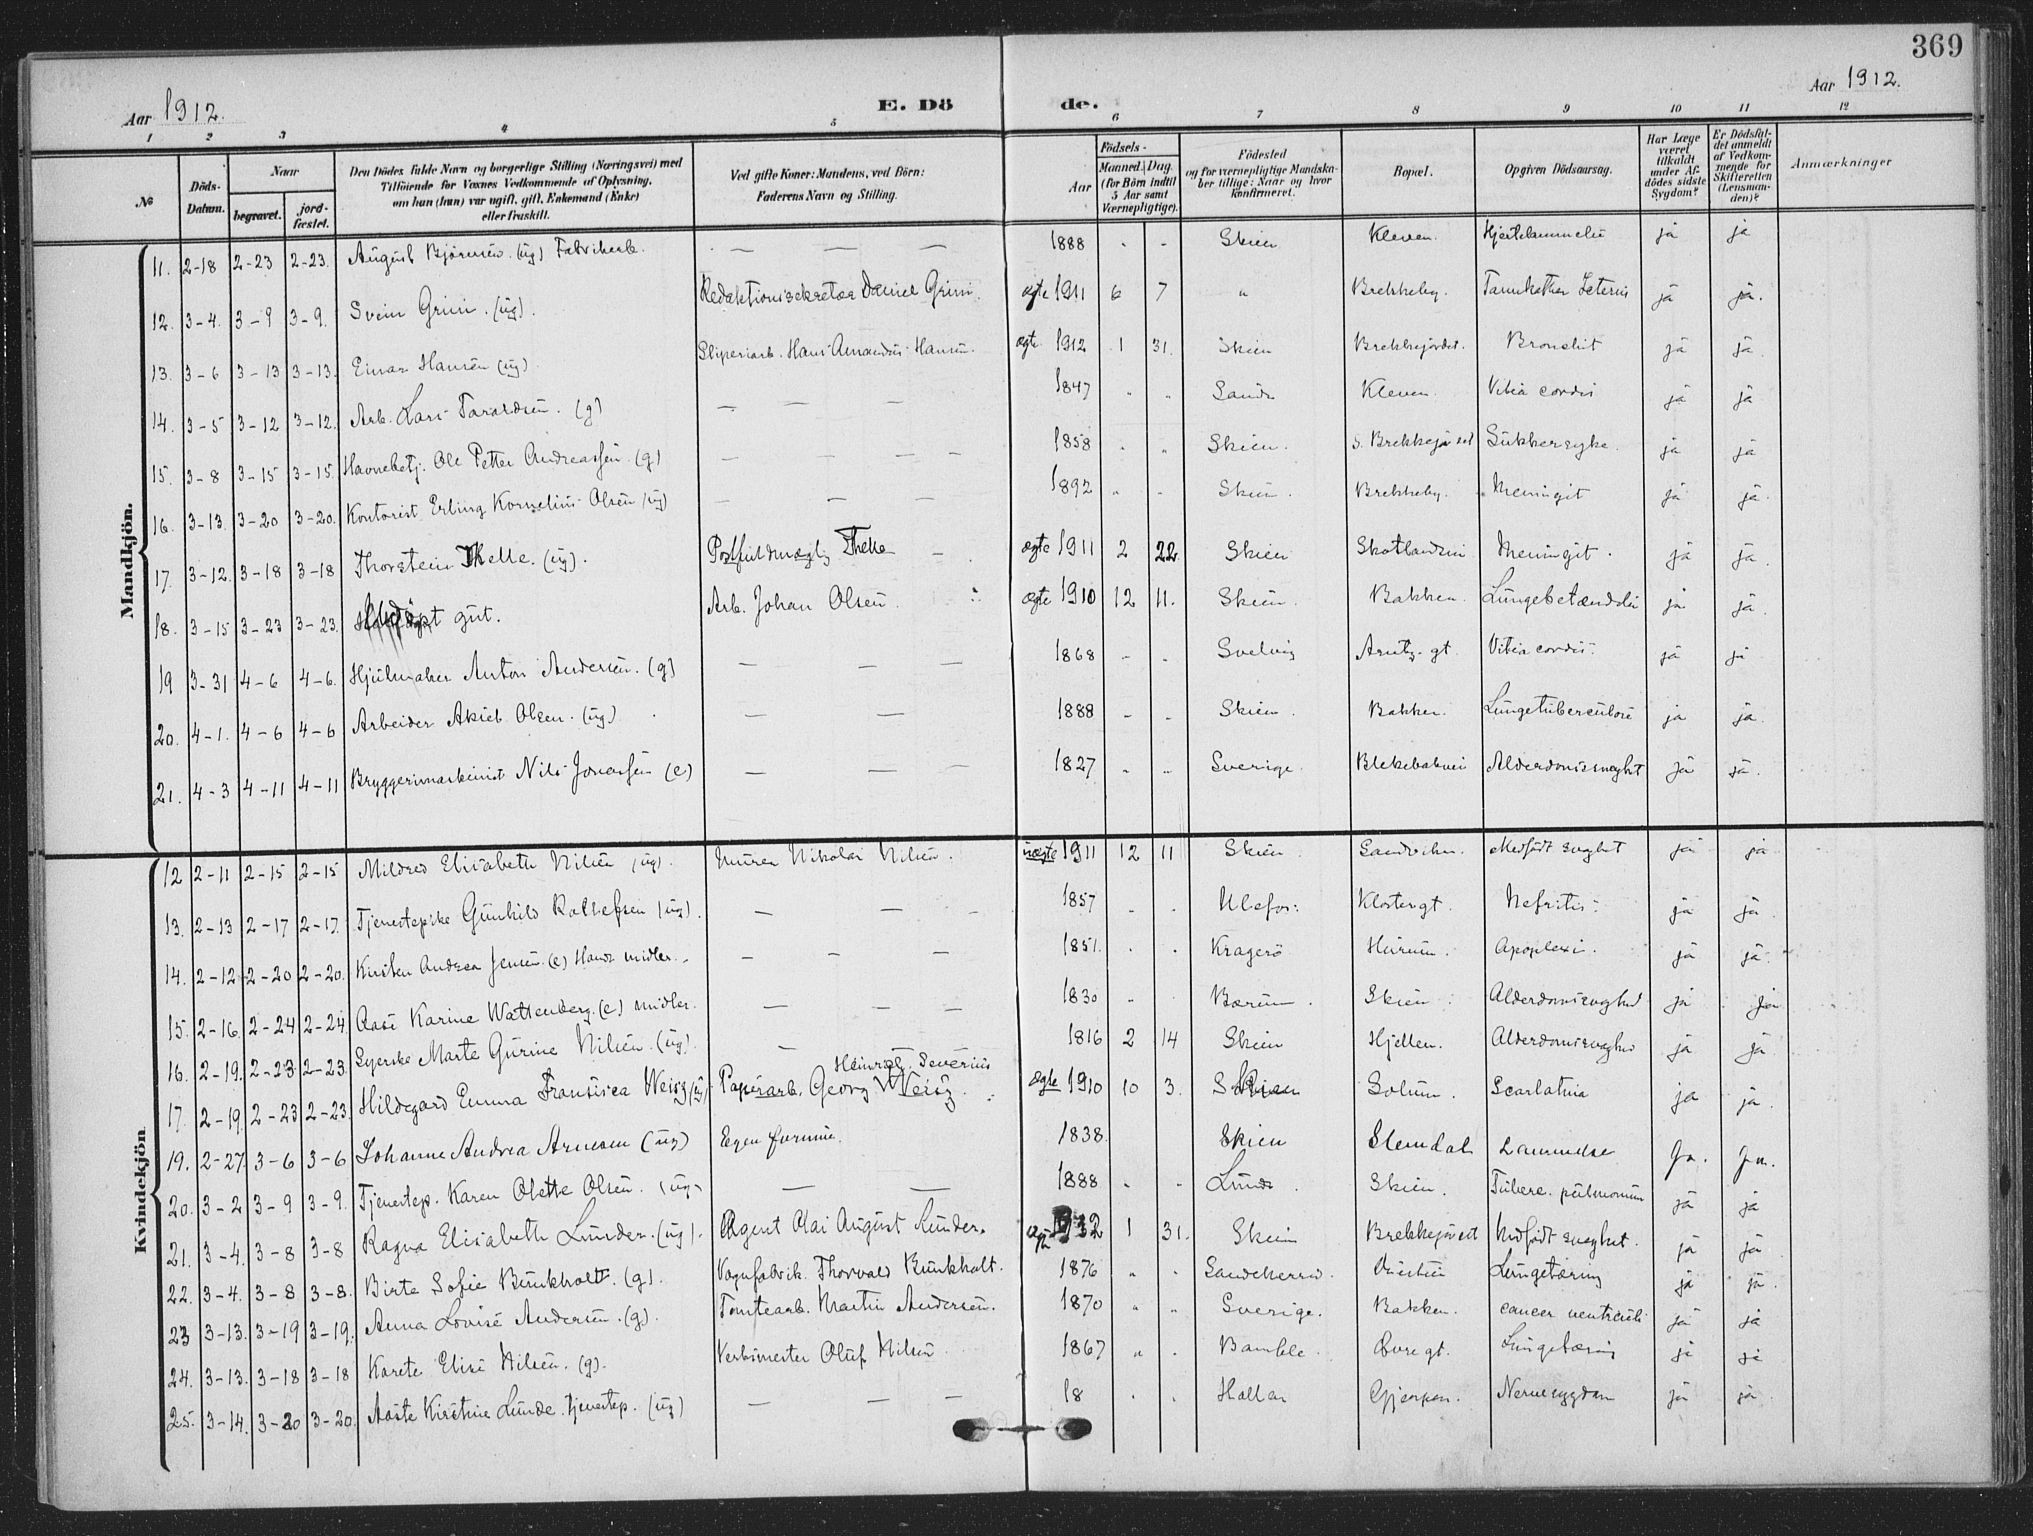 369
Aar 1912.
E. Dö
de.
Aar 1912.
1 2 3 4 5 6 7 8 9 10 11 12
№
Döds-Datum.
Naar
begravet.
jord-fæstet.
Den Dödes fulde Navn og borgerlige Stilling (Næringsvei) med
Tilföiende for Voxnes Vedkommende af Oplysning,
om han (hun) var ugift, gift, Enkemand (Enke)
eller fraskilt.
Ved gifte Koner: Mandens, ved Börn:
Faderens Navn og Stilling.
Födsels-
Aar
Maaned. Dag.
(for Börn indtil
5 Aar samt
Værnepligtige).
Födested
og for værnepligtige Mandska-
ber tillige: Naar og hvor
konfirmeret.
Bopæl.
Opgiven Dödsaarsag.
Har Læge
været
tilkaldt
under Af-
dödes sidste
Sygdom?
Er Dödsfal-
det anmeldt
af Vedkom-
mende for
Skifteretten
(Lensman-
den)?
Anmærkninger
Mandkjön.
11. 2-18 2-23 2-23. August Björnsen. (ug) Fabrikarb. — — — 1888 - - Skien Kleven. Hjertelammelse ja ja
12. 3-4. 3-9 3-9. Svein Grini. (ug). Redaktionssekretær Daniel Grini. ægte 1911 6 7 " Brekkeby. ja ja.
13. 3-6 3-13 3-13. Einar Hansen (ug) Sliperiarb. Hans Amandus Hansen. ægte 1912 1 31. Skien Brekkejordet. Bronchit ja ja.
14. 3-5 3-12 3-12. Arb. Lars Taraldsen. (g) — — — 1847 " " Sande Kleven. Vitia cordis ja ja
15. 3-8 3-15 3-15. Havnebetj. Ole Petter Andreassen. (g) — — — — 1858 " " Skien. S. Brekkejordet Sukkersyke. ja ja
16. 3-13. 3-20 3-20. Kontorist Erling Kornelius Olsen (ug) — — — 1892 " - Skien. Brekkeby. Meningit ja ja.
17. 3-12. 3-18 3-18 Thorstein Thelle. (ug). Postfuldmægtig Thelle — ægte 1911 2 22. Skien Skotlandsvei Meningit. ja ja.
18. 3-15 3-23 3-23. Udöpt gut. Arb. Johan Olsen. ægte 1910 12 11. Skien. Bakken. Lungebetændelse ja ja.
19 3-31 4-6 4-6. Hjulmaker Anton Andersen. (g) — — 1868 - - Svelvig Arntz.gt. Vitia cordis. ja ja
20. 4-1. 4-6 4-6 Arbeider Aksel Olsen. (ug.) — — 1888 - - Skien. Bakken. Lungetuberculose ja ja.
21. 4-3 4-11 4-11 Bryggerimaskinist Nils Jonassen (e) — — — 1827 " " Sverige. Blekebakvei Alderdomssvaghet ja ja.
Kvindekjön
12 2-11 2-15 2-15 Mildred Elisabeth Nilsen (ug). Murer Nikolai Nilsen. uægte 1911 12 11 Skien. Sandviken. Medfödt svaghet ja ja
13. 2-13 2-17 2-17. Tjenestepike Gunhild Rollefsen (ug). — — - 1857 . . Ulefos. Klostergt. Nefritis. ja ja.
14. 2-12 2-20 2-20. Kirsten Andrea Jensen. (e) Hands midler. — — — 1851. . . Kragerö Hurum. Apoplexi. ja ja.
15. 2-16. 2-24 2-24. Aase Karine Wattenberg. (e) midler. — — — 1830 " . Bærum. Skien Alderdomssvaghed ja ja
16. 2-19. 2-23 2-23. Syerske Marte Gurine Nilsen. (ug). — 1816 2 14 Skien Hjellen. Alderdomssvaghed ja ja
17. 2-19. 2-23 2-23. Hildegard Emma Fransisca Weisz (ug) Papirarb. Georg Heinrich Severius Weisz. ægte 1910 10 3. Skien Solum. Scarlatina ja ja.
19. 2-27. 3-6 3-6 Johanne Andrea Arnesen (ug) Egen formue. 1838. Skien Slemdal Lammelse Ja. Ja.
20. 3-2 3-9 3-9. Tjenestep. Karen Olette Olsen. (ug) — — 1888 " - Lunde. Skien. Tuberc. pulmonum ja ja
21. 3-4. 3-8 3-8 Ragna Elisabeth Lunder. (ug). Agent Olai August Lunder. ægte 1912 1 31. Skien Brekkejordet Medfödt svaghet. ja ja
22. 3-4. 3-8 3-8. Birte Sofie Bunkholt. (g). Vognfabrik. Thorvald Bunkholt. 1876 " " Sandeherred. Lungetæring ja ja.
23 3-13. 3-19 3-19. Anna Lovise Andersen. (g). Tomtearb. Martin Andersen. 1870 " " Sverige. Bakken. cancer ventriculi ja ja
24. 3-13. 3-18 3-18 Karete Elise Nilsen. (g). Verksmester Oluf Nilsen. 1867 " . Bamble. Övregt. Lungetæring ja ja
25. 3-14. 3-20 3-20. Aaste Kirstine Lunde. tjenestep. (ug) — — — 18 . . Hollen Gjerpen. Nervesygdom ja ja.